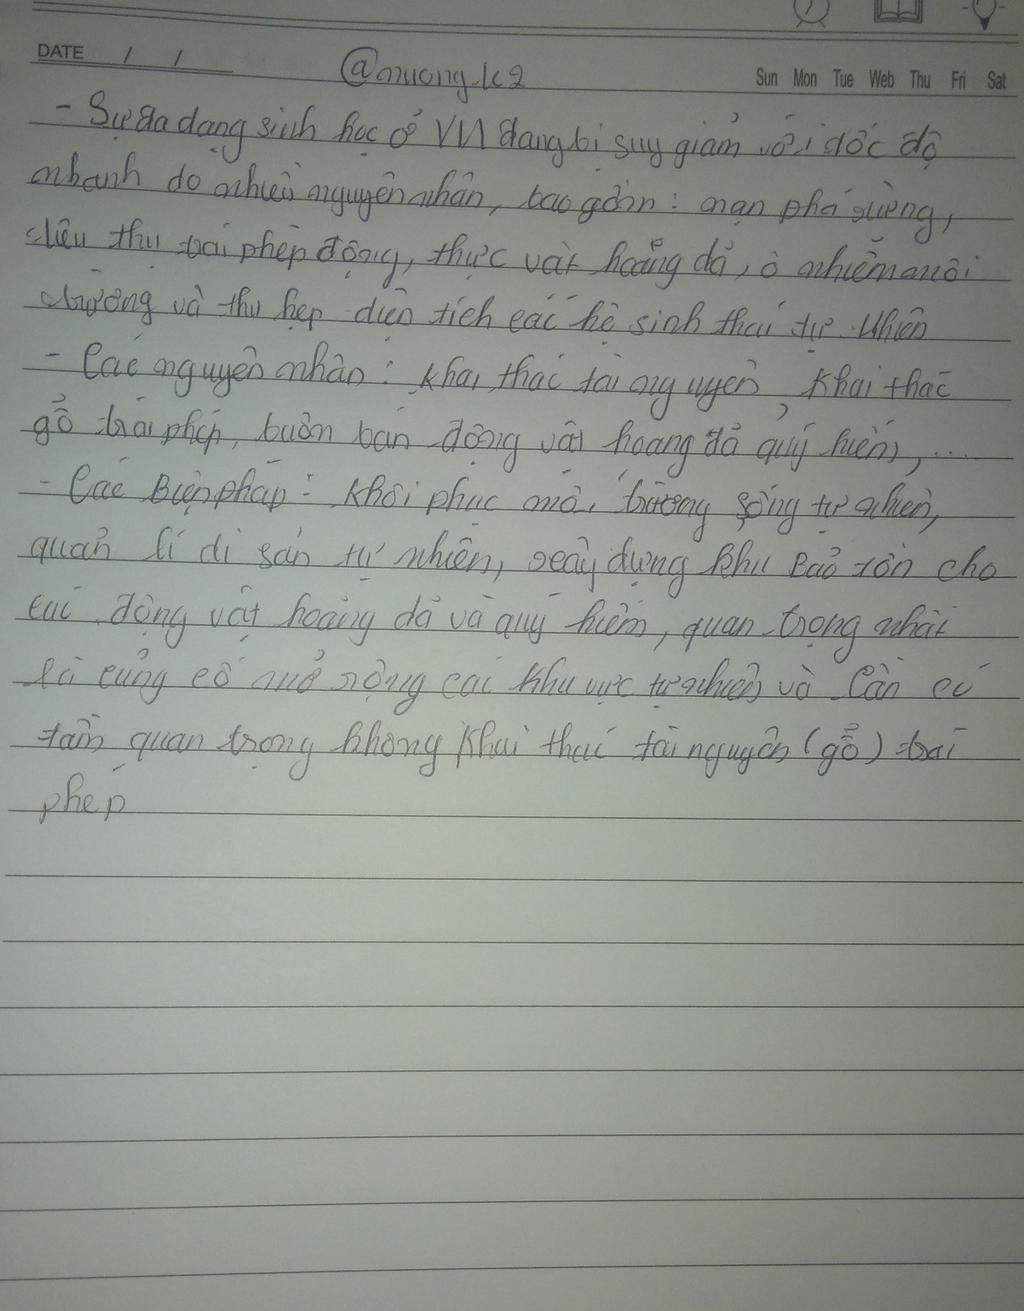 DATE / /
@muong.k2
Sun Mon Tue Web Thu Fri Sat
- Sự đa dạng sinh học ở VN đang bị suy giảm với dốc độ
nhanh do nhiều nguyên nhân, bao gồm: nạn phá rừng,
tiêu thụ trái phép động, thực vật hoang dã, ô nhiễm môi
trường và thu hẹp diện tích các hệ sinh thái tự nhiên
- Các nguyên nhân: Khai thác tài nguyên, Khai thác
gỗ trái phép, buôn bán động vật hoang dã quý hiếm, ....
- Các Biện pháp: Khôi phục môi trường sống tự nhiên,
quản lí di sản tự nhiên, xây dựng khu Bảo tồn cho
các động vật hoang dã và quý hiếm, quan trọng nhất
là củng cố mở rộng các khu vực tự nhiên và Cần có
tầm quan trọng không khai thác tài nguyên (gỗ) trái
phép